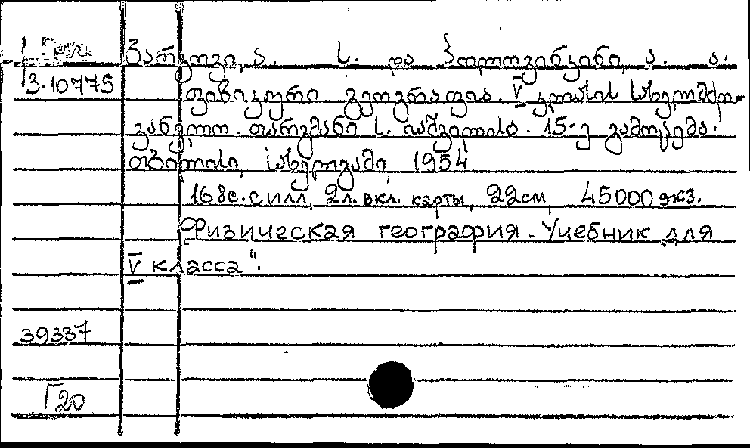 ბარკოვი, ა. ს. და პოლოვინკინი, ა. ა.
3.10775
ფიზიკური გეოგრაფია. V კლასის სახელმძღ-
ვანელო. თარგმანი ს. 15-ე გამოცემა.
თბილისი, სახელგამი, 1954
168с. с илл, 2л. вкл. карты, 22см, 45000 экз.
Физическая география. Учебник для
V класса".
39337
Г20